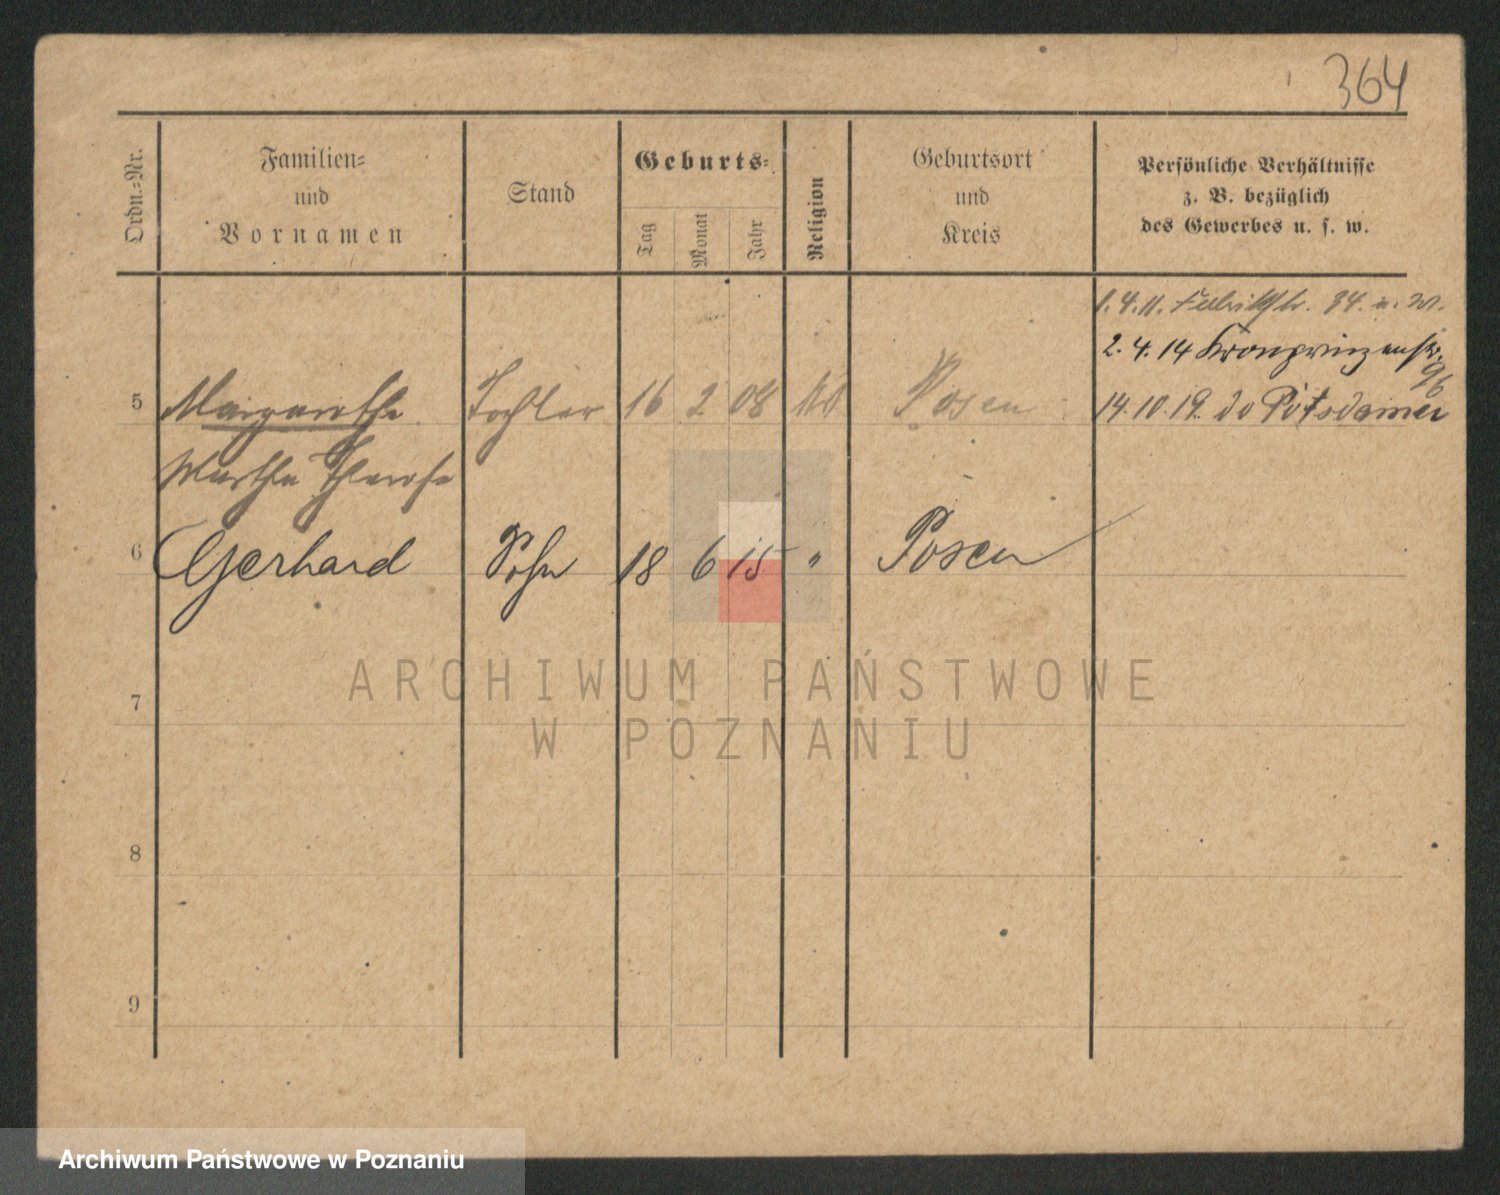 364
Ordn.-Nr.
Familien-
und
Vornamen
Stand
Geburts-
Tag
Monat
Jahr
Religion
Geburtsort
und
Kreis
Persönliche Verhältnisse
z. B. bezüglich
des Gewerbes u. s. w.
1.4.11. 34.
2.4.14 Kronprinzenstr.
96
5 Margarethe Tochter 16 2 08 Posen 14.10.19. do Potsdamer
Martha Therese
6 Gerhard Sohn 18 6 15 " Posen
ARCHIWUM PAŃSTWOWE
W POZNANIU
7
8
9
Archiwum Państwowe w Poznaniu